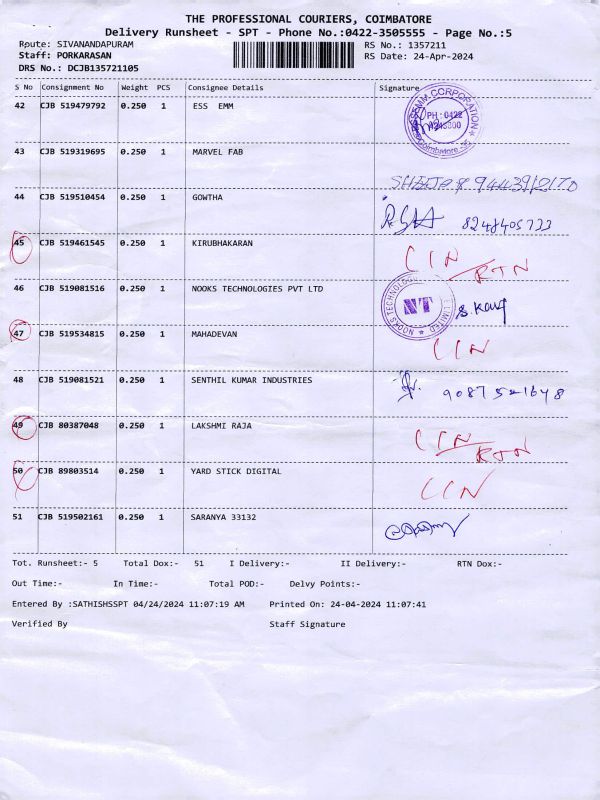 THE PROFESSIONAL COURIERS, COIMBATORE
Delivery Runsheet - SPT - Phone No.:0422-3505555 - Page No.:5
Route: SIVANANDAPURAM RS No.: 1357211
Staff: PORKARASAN RS Date: 24-Apr-2024
DRS No.: DCJB135721105
S No Consignment No Weight PCS Consignee Details Signature
42 CJB 519479792 0.250 1 ESS EMM
PH : 0422
43 CJB 519319695 0.250 1 MARVEL FAB
44 CJB 519510454 0.250 1 GOWTHA 8248405733
45 CJB 519461545 0.250 1 KIRUBHAKARAN LIN RTN
46 CJB 519081516 0.250 1 NOOKS TECHNOLOGIES PVT LTD
NOOKS TECHNOLOGIES LIMITED NT
47 CJB 519534815 0.250 1 MAHADEVAN LIN
48 CJB 519081521 0.250 1 SENTHIL KUMAR INDUSTRIES
49 CJB 80387048 0.250 1 LAKSHMI RAJA LIN RTN
50 CJB 89803514 0.250 1 YARD STICK DIGITAL LIN
51 CJB 519502161 0.250 1 SARANYA 33132
Tot. Runsheet:- 5 Total Dox:- 51 I Delivery:- II Delivery:- RTN Dox:-
Out Time:- In Time:- Total POD:- Delvy Points:-
Entered By :SATHISHSSPT 04/24/2024 11:07:19 AM Printed On: 24-04-2024 11:07:41
Verified By Staff Signature